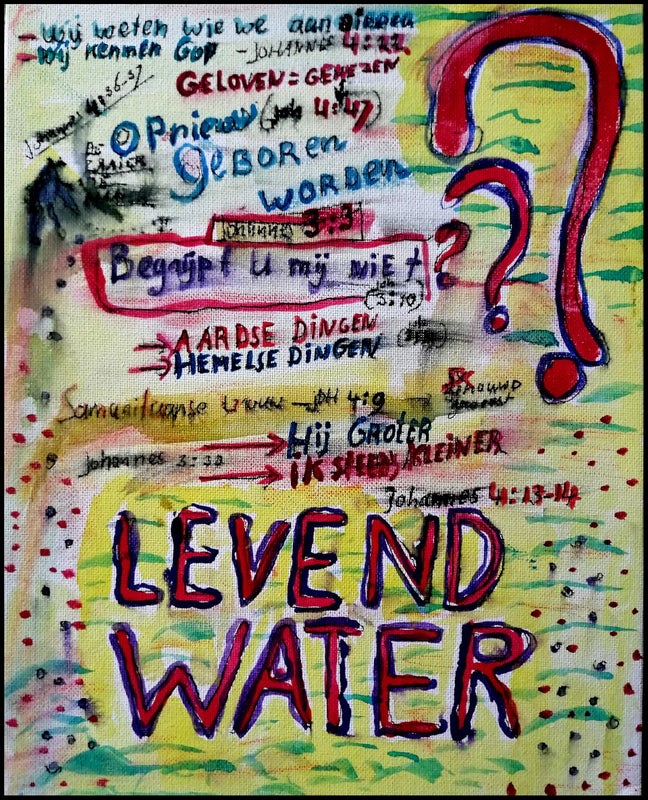 - Wij weten wie we aanbidden
- Wij kennen God - JOHANNES 4:22
GELOVEN = GENEZEN
Johannes 4:36-37
(Joh 4:47)
Opnieuw
GEBOREN
WORDEN
Johannes 3:3
Begrijpt U mij niEt
(Joh 3:10)
→ AARDSE DINGEN
→ HEMELSE DINGEN
Samaritaanse vrouw - JOH 4:9
→ Hij GROTER
Johannes → iK STEEDS KLEINER
Johannes 4:13-14
LEVEND
WATER